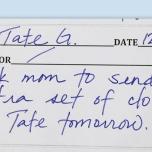 Tate G. DATE 12
OR
k mom to send
tra set of clo
Tate tomorrow.